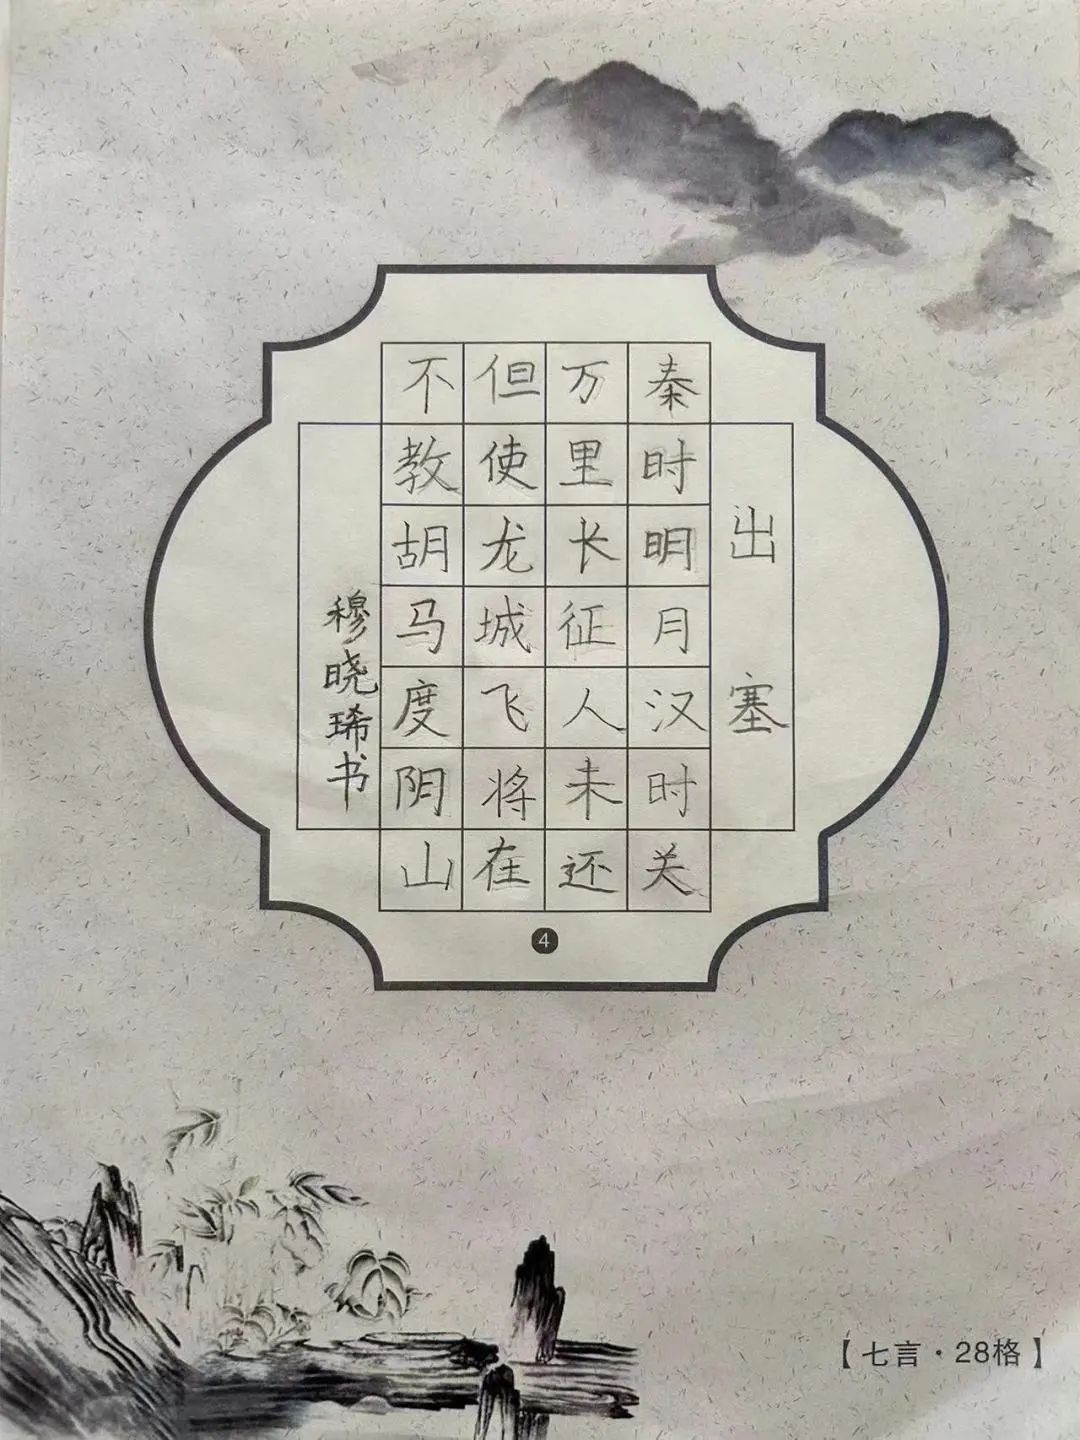 出塞
秦时明月汉时关
万里长征人未还
但使龙城飞将在
不教胡马度阴山
穆晓琋书
4
【七言·28格】